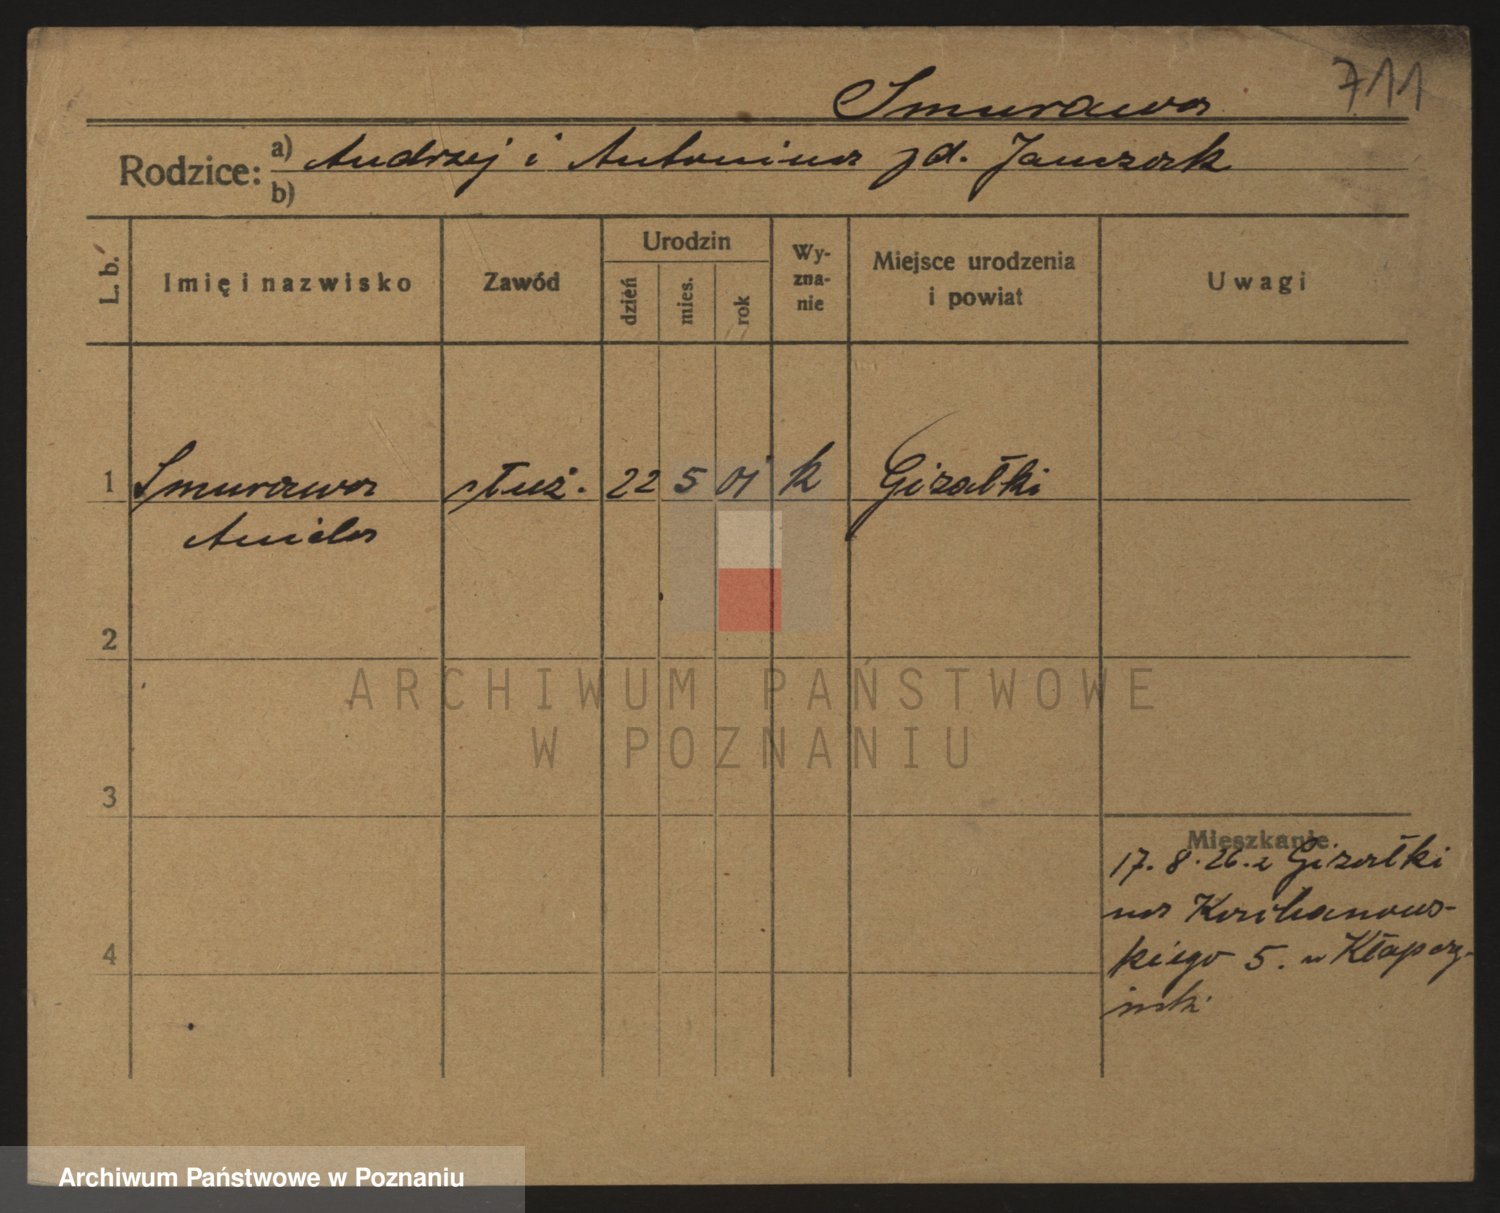 711
Smurawa
Rodzice: a) Andrzej i Antonina zd. Janczak
b)
L. b.
Imię i nazwisko
Zawód
Urodzin
dzień
mies.
rok
Wy-
zna-
nie
Miejsce urodzenia
i powiat
Uwagi
1 Smurawa służ. 22 5 01 k Gizałki
Aniela
2
ARCHIWUM PAŃSTWOWE
W POZNANIU
3
Mieszkanie
17. 8. 26. z Gizałki
na
kiego 5. u Kłapczy-
4
Archiwum Państwowe w Poznaniu